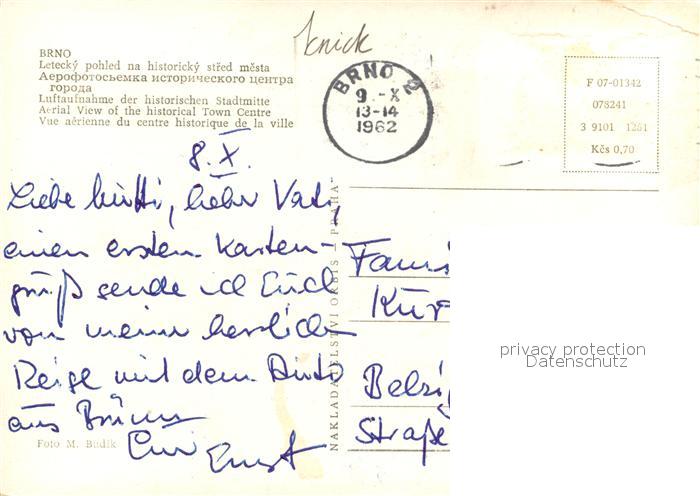 Knick
BRNO
Letecký pohled na historický střed města
Аерофотосьемка исторического центра
города
Luftaufnahme der historischen Stadtmitte
Aerial View of the historical Town Centre
Vue aérienne du centre historique de la ville
BRNO 2
9.-X
13-14
1962
F 07-01342
078241
3 9101 1261
Kčs 0,70
8.X.
Liebe Mutti, lieber Vati,
einen ersten Karten-
gruß sende ich Euch
von meiner herrlichen
Reise mit dem Auto
aus Brünn
Euer Ernst
Foto M. Budík
NAKLADATELSTVÍ ORBIS PRAHA
Fami
Kür
Belzig
Straße
privacy protection
Datenschutz